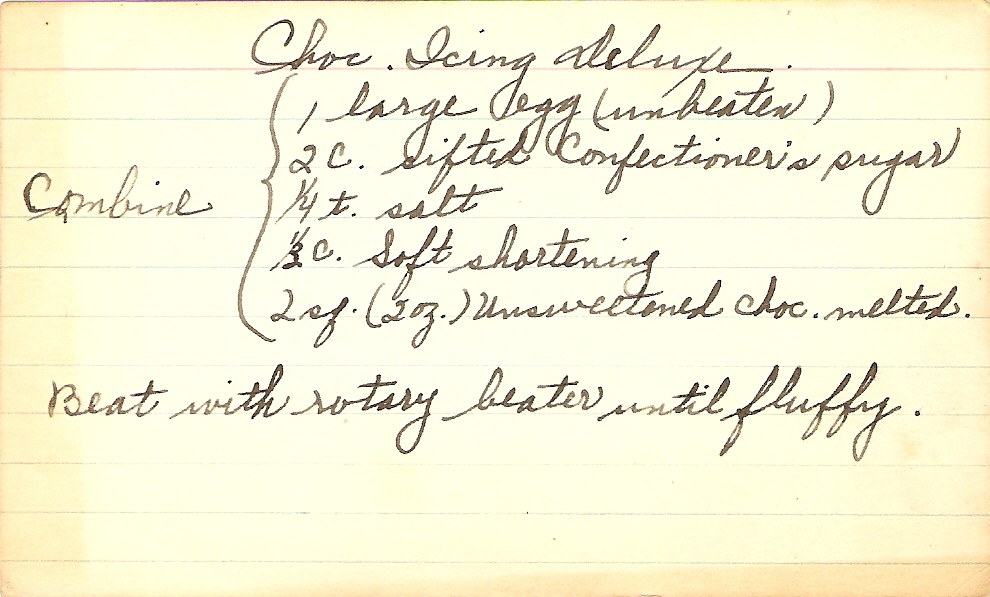 Choc. Icing deluxe.
1 large egg (unbeaten)
2 C. sifted Confectioner's sugar
Combine
1/4 t. salt
1/3 C. Soft shortening
2 sq. (2 oz.) Unsweetened choc. melted.
Beat with rotary beater until fluffy.